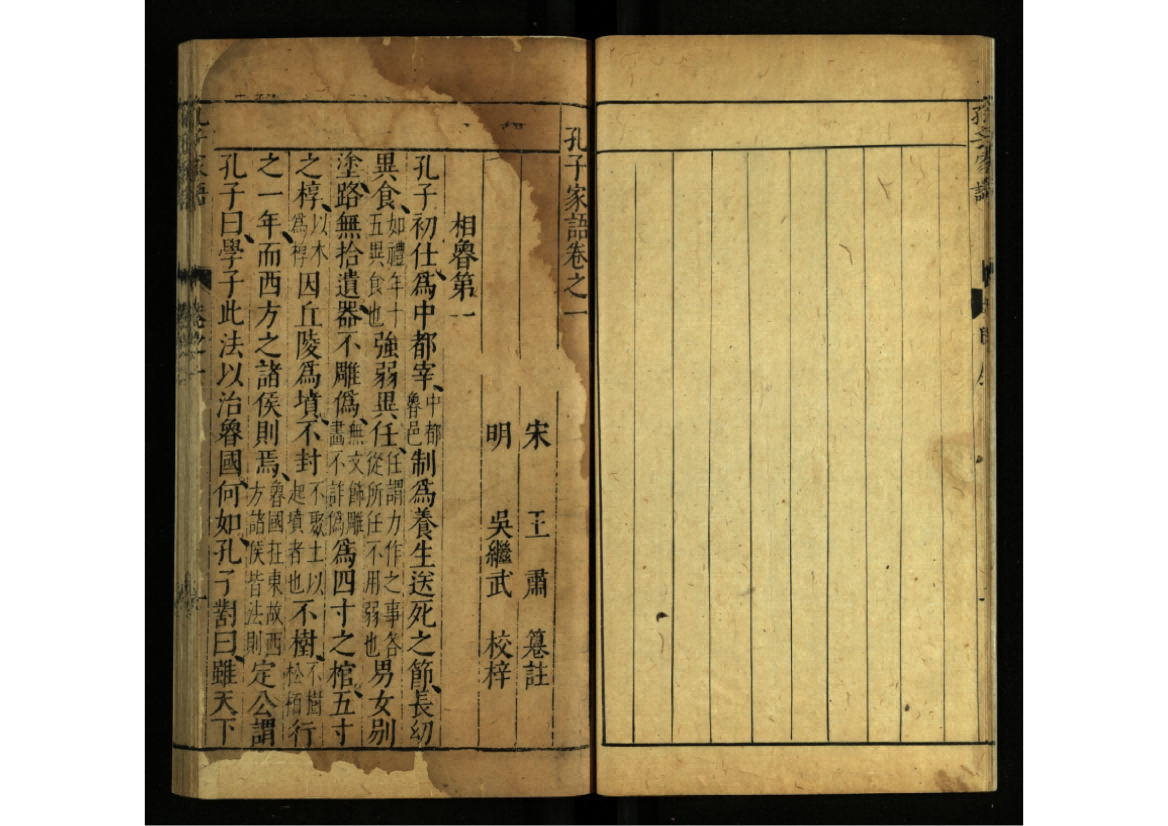 孔子家語
孔子家語卷之一
宋 王 肅 纂註
明 吳繼武 校梓
相魯第一
孔子初仕、爲中都宰、中都魯邑制爲養生送死之節、長幼
異食、如禮年十五異食也強弱異任、任謂力作之事各從所任不用弱也男女別
塗、路無拾遺、器不雕僞、無文飾雕畫不詐僞爲四寸之棺、五寸
之椁、以木爲椁因丘陵爲墳、不封不聚土以起墳者也不樹、不樹松栢行
之一年、而西方之諸侯則焉、魯國在東故西方諸侯皆法則定公謂
孔子曰、學子此法以治魯國、何如、孔子對曰、雖天下
孔子家語
卷之一
一